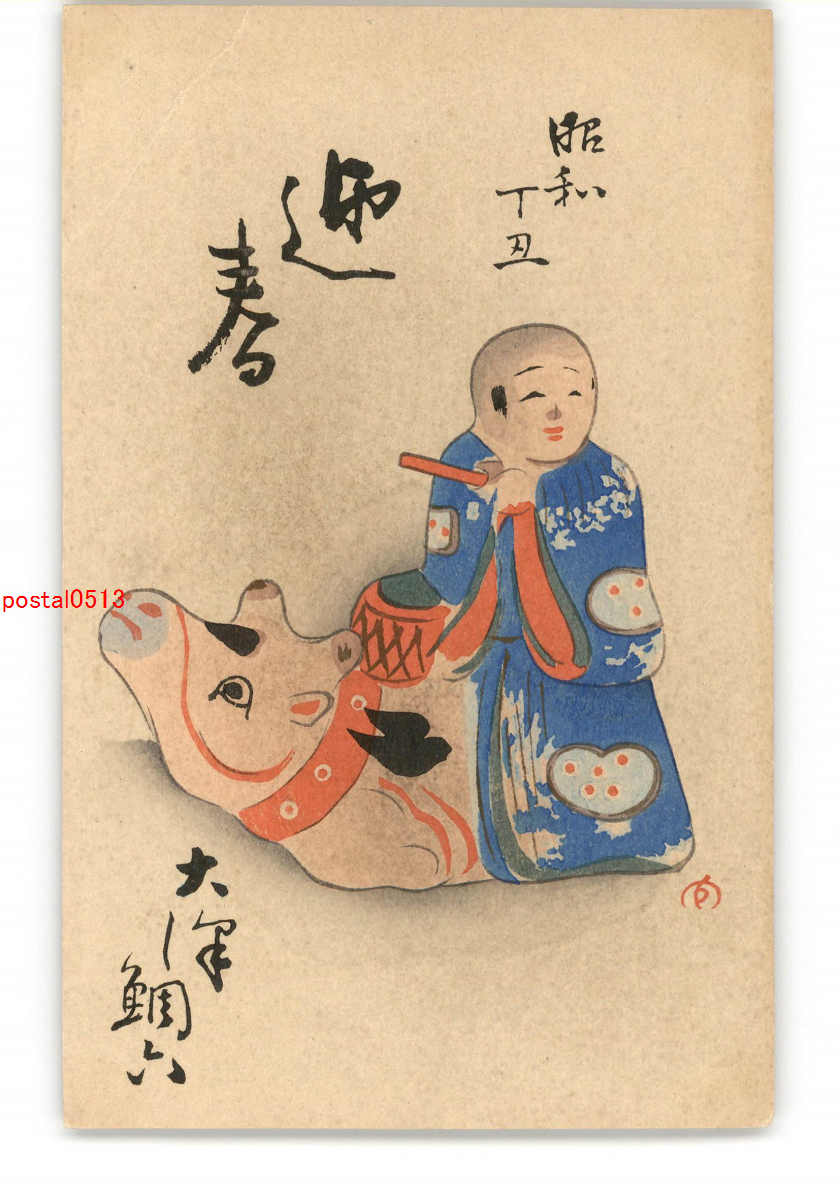 昭和
丁丑
迎
春
大澤
鯛六
postal0513